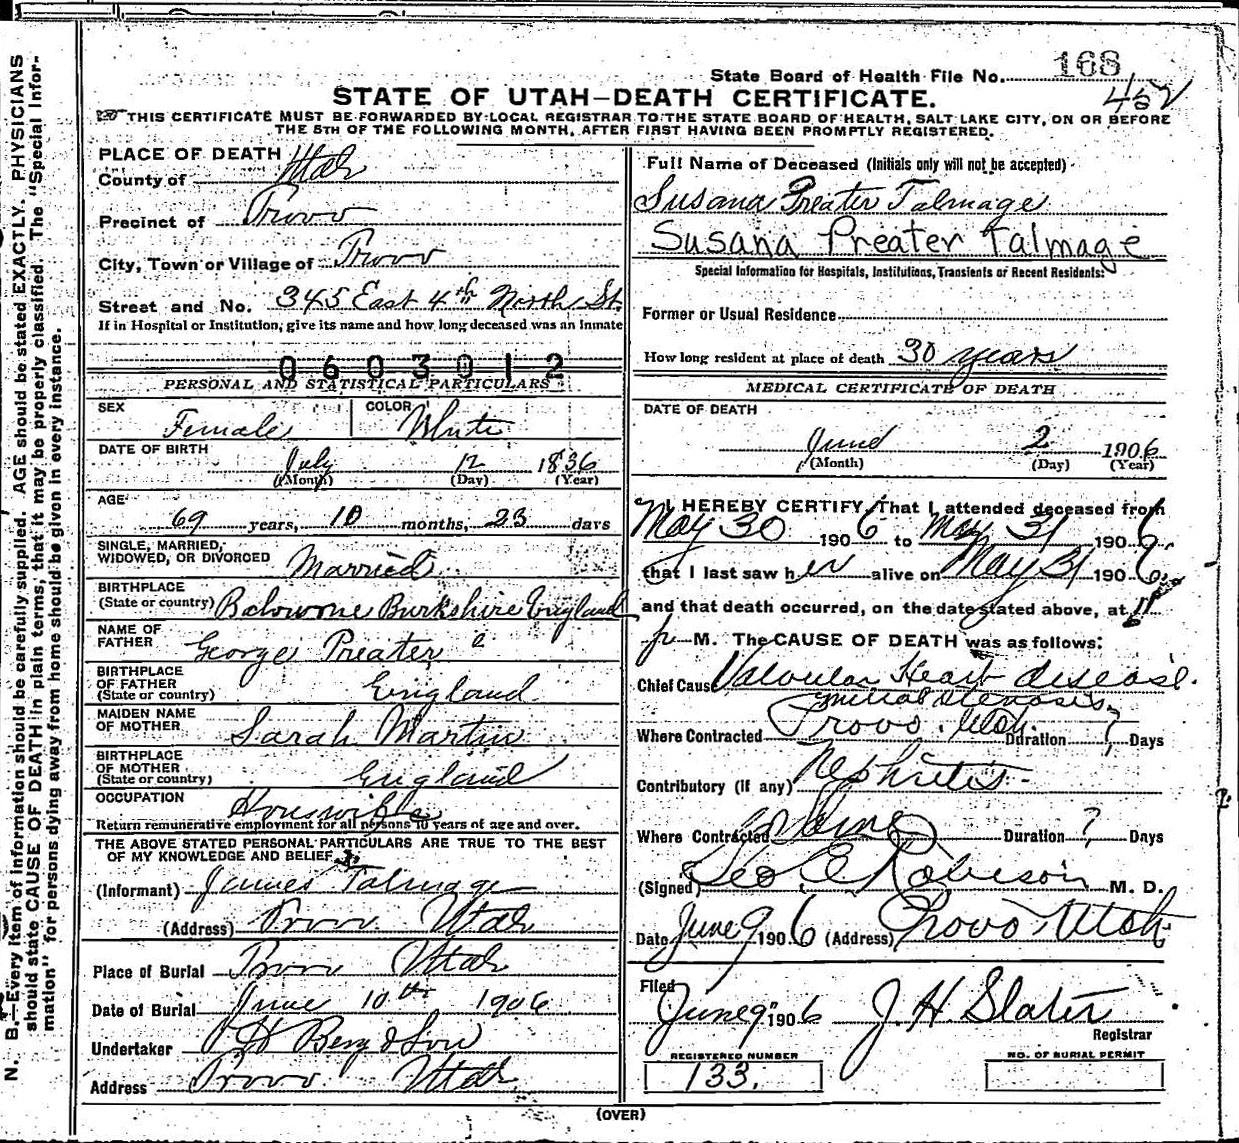 State Board of Health File No. 168
452
STATE OF UTAH—DEATH CERTIFICATE.
THIS CERTIFICATE MUST BE FORWARDED BY LOCAL REGISTRAR TO THE STATE BOARD OF HEALTH, SALT LAKE CITY, ON OR BEFORE
THE 5TH OF THE FOLLOWING MONTH, AFTER FIRST HAVING BEEN PROMPTLY REGISTERED.
PLACE OF DEATH
County of Utah
Precinct of Provo
City, Town or Village of Provo
Street and No. 345 East 4th North St.
If in Hospital or Institution, give its name and how long deceased was an Inmate
0603012
PERSONAL AND STATISTICAL PARTICULARS
SEX Female COLOR White
DATE OF BIRTH
July 12 1836
(Month) (Day) (Year)
AGE
69 years, 10 months, 23 days
SINGLE, MARRIED,
WIDOWED, OR DIVORCED Married
BIRTHPLACE
(State or country) Burkshire England
NAME OF
FATHER George Preater
BIRTHPLACE
OF FATHER
(State or country) England
MAIDEN NAME
OF MOTHER Sarah Martin
BIRTHPLACE
OF MOTHER
(State or country) England
OCCUPATION Houswife
Return remunerative employment for all persons 10 years of age and over.
THE ABOVE STATED PERSONAL PARTICULARS ARE TRUE TO THE BEST
OF MY KNOWLEDGE AND BELIEF
(Informant) James Talmage
(Address) Provo Utah
Place of Burial Provo Utah
Date of Burial June 10th 1906
Undertaker Berg & Son
Address Provo Utah
Full Name of Deceased (Initials only will not be accepted)
Susana Preater Talmage
Susana Preater Talmage
Special Information for Hospitals, Institutions, Transients or Recent Residents:
Former or Usual Residence
How long resident at place of death 30 years
MEDICAL CERTIFICATE OF DEATH
DATE OF DEATH
June 2 1906
(Month) (Day) (Year)
I HEREBY CERTIFY, That I attended deceased from
May 30 1906 to May 31 1906,
that I last saw her alive on May 31 1906,
and that death occurred, on the date stated above, at 11
p M. The CAUSE OF DEATH was as follows:
Chief Cause Valvular Heart disease.
mitral stenosis
Where Contracted Provo. Utah. Duration ? Days
Contributory (if any) Nephritis
Where Contracted Duration ? Days
(Signed) Geo E Robison M. D.
Date June 9 1906 (Address) Provo Utah
Filed
June 9 1906 J. H. Slater
Registrar
REGISTERED NUMBER
133.
NO. OF BURIAL PERMIT
(OVER)
N. B.—Every item of information should be carefully supplied. AGE should be stated EXACTLY. PHYSICIANS
should state CAUSE OF DEATH in plain terms, that it may be properly classified. The "Special Infor-
mation" for persons dying away from home should be given in every instance.